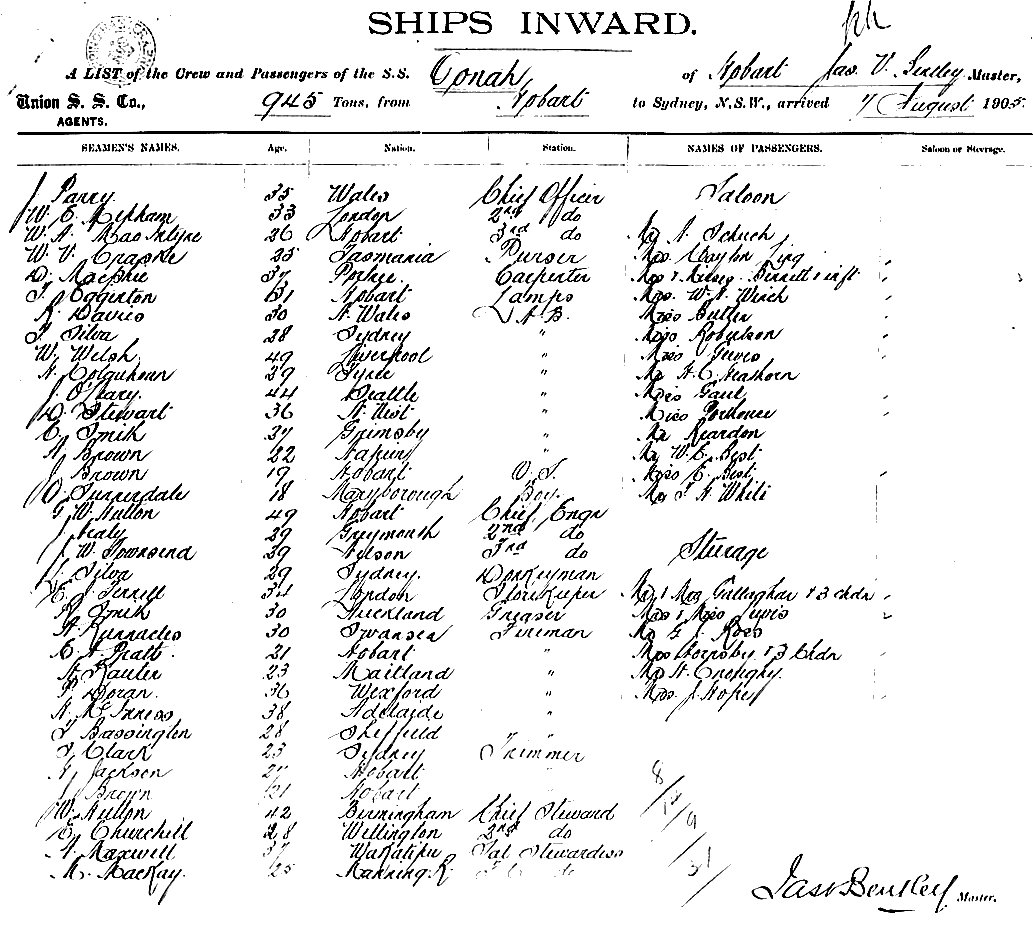 SHIPS INWARD.
A LIST of the Crew and Passengers of the S.S. Oonah of Hobart Jas. V. Bentley Master,
Union S. S. Co., 945 Tons, from Hobart to Sydney, N.S.W., arrived 7 August 1905
AGENTS.
SEAMEN'S NAMES. Age. Nation. Station. NAMES OF PASSENGERS. Saloon or Steerage.
J Parry 35 Wales Chief Officer Saloon
W. E. Mepham 33 London 2nd do
W. A. MacIntyre 26 Hobart 3rd do Mr A. Schuch
W. V. Crapske 25 Tasmania Purser Mrs
D. MacPhie 37 Carpenter Mrs & Misses Bennett & inft
T. Egginton 31 Hobart Lamps Mrs. W. A. Winch
R. Davies 30 N. Wales A.B. Miss Butler
J. Silva 28 Sydney " Miss Robertson
W. Welsh 49 Liverpool " Miss
A. Colquhoun 39 Tyree " Mr H. C. Heathorn
J. O'Hary. 44 Seattle " Miss Gaul
D. Stewart 36 N. Uist " Miss
C. Smith 37 Grimsby " Mr Reardon
A. Brown 22 " Mr W. E. Best
J Brown 19 Hobart O. S. Miss E. Best
O. Sunnerdale 18 Maryborough Boy. Mr J. H. White
G. W. Hutton 49 Hobart Chief Engr
J. Healy 29 Greymouth 2nd do
J. W. Townsend 39 Nelson 3rd do Steerage
L. Silva 29 Sydney. Donkeyman
E. J. Terrell 34 London Storekeeper Mr & Mrs Gallaghar & 3 chdn
P. Smith 30 Auckland Greaser Mrs & Miss Lewis
H. Runnacles 30 Swansea Fireman Mr G. J. Ross
C. A. Pratt. 21 Hobart " Mrs Hornsby & 3 Chdn
A. 23 Maitland " Mr H.
P. Doran. 36 Wexford " Mrs. J. Hope
A. McInness 38 Adelaide "
T Bassington 28 Sheffield "
J. Clark 23 Sydney Trimmer
A. Jackson 27 Hobart "
J Brown 21 Hobart "
W. Hutton 42 Birmingham Chief Steward
E. Churchill 28 Wellington 2nd do
A. Maxwell 37 Wakatipu Sal Stewardess
M. MacKay. 25 Manning R. do
8
14
9
31
Jas V Bentley Master.